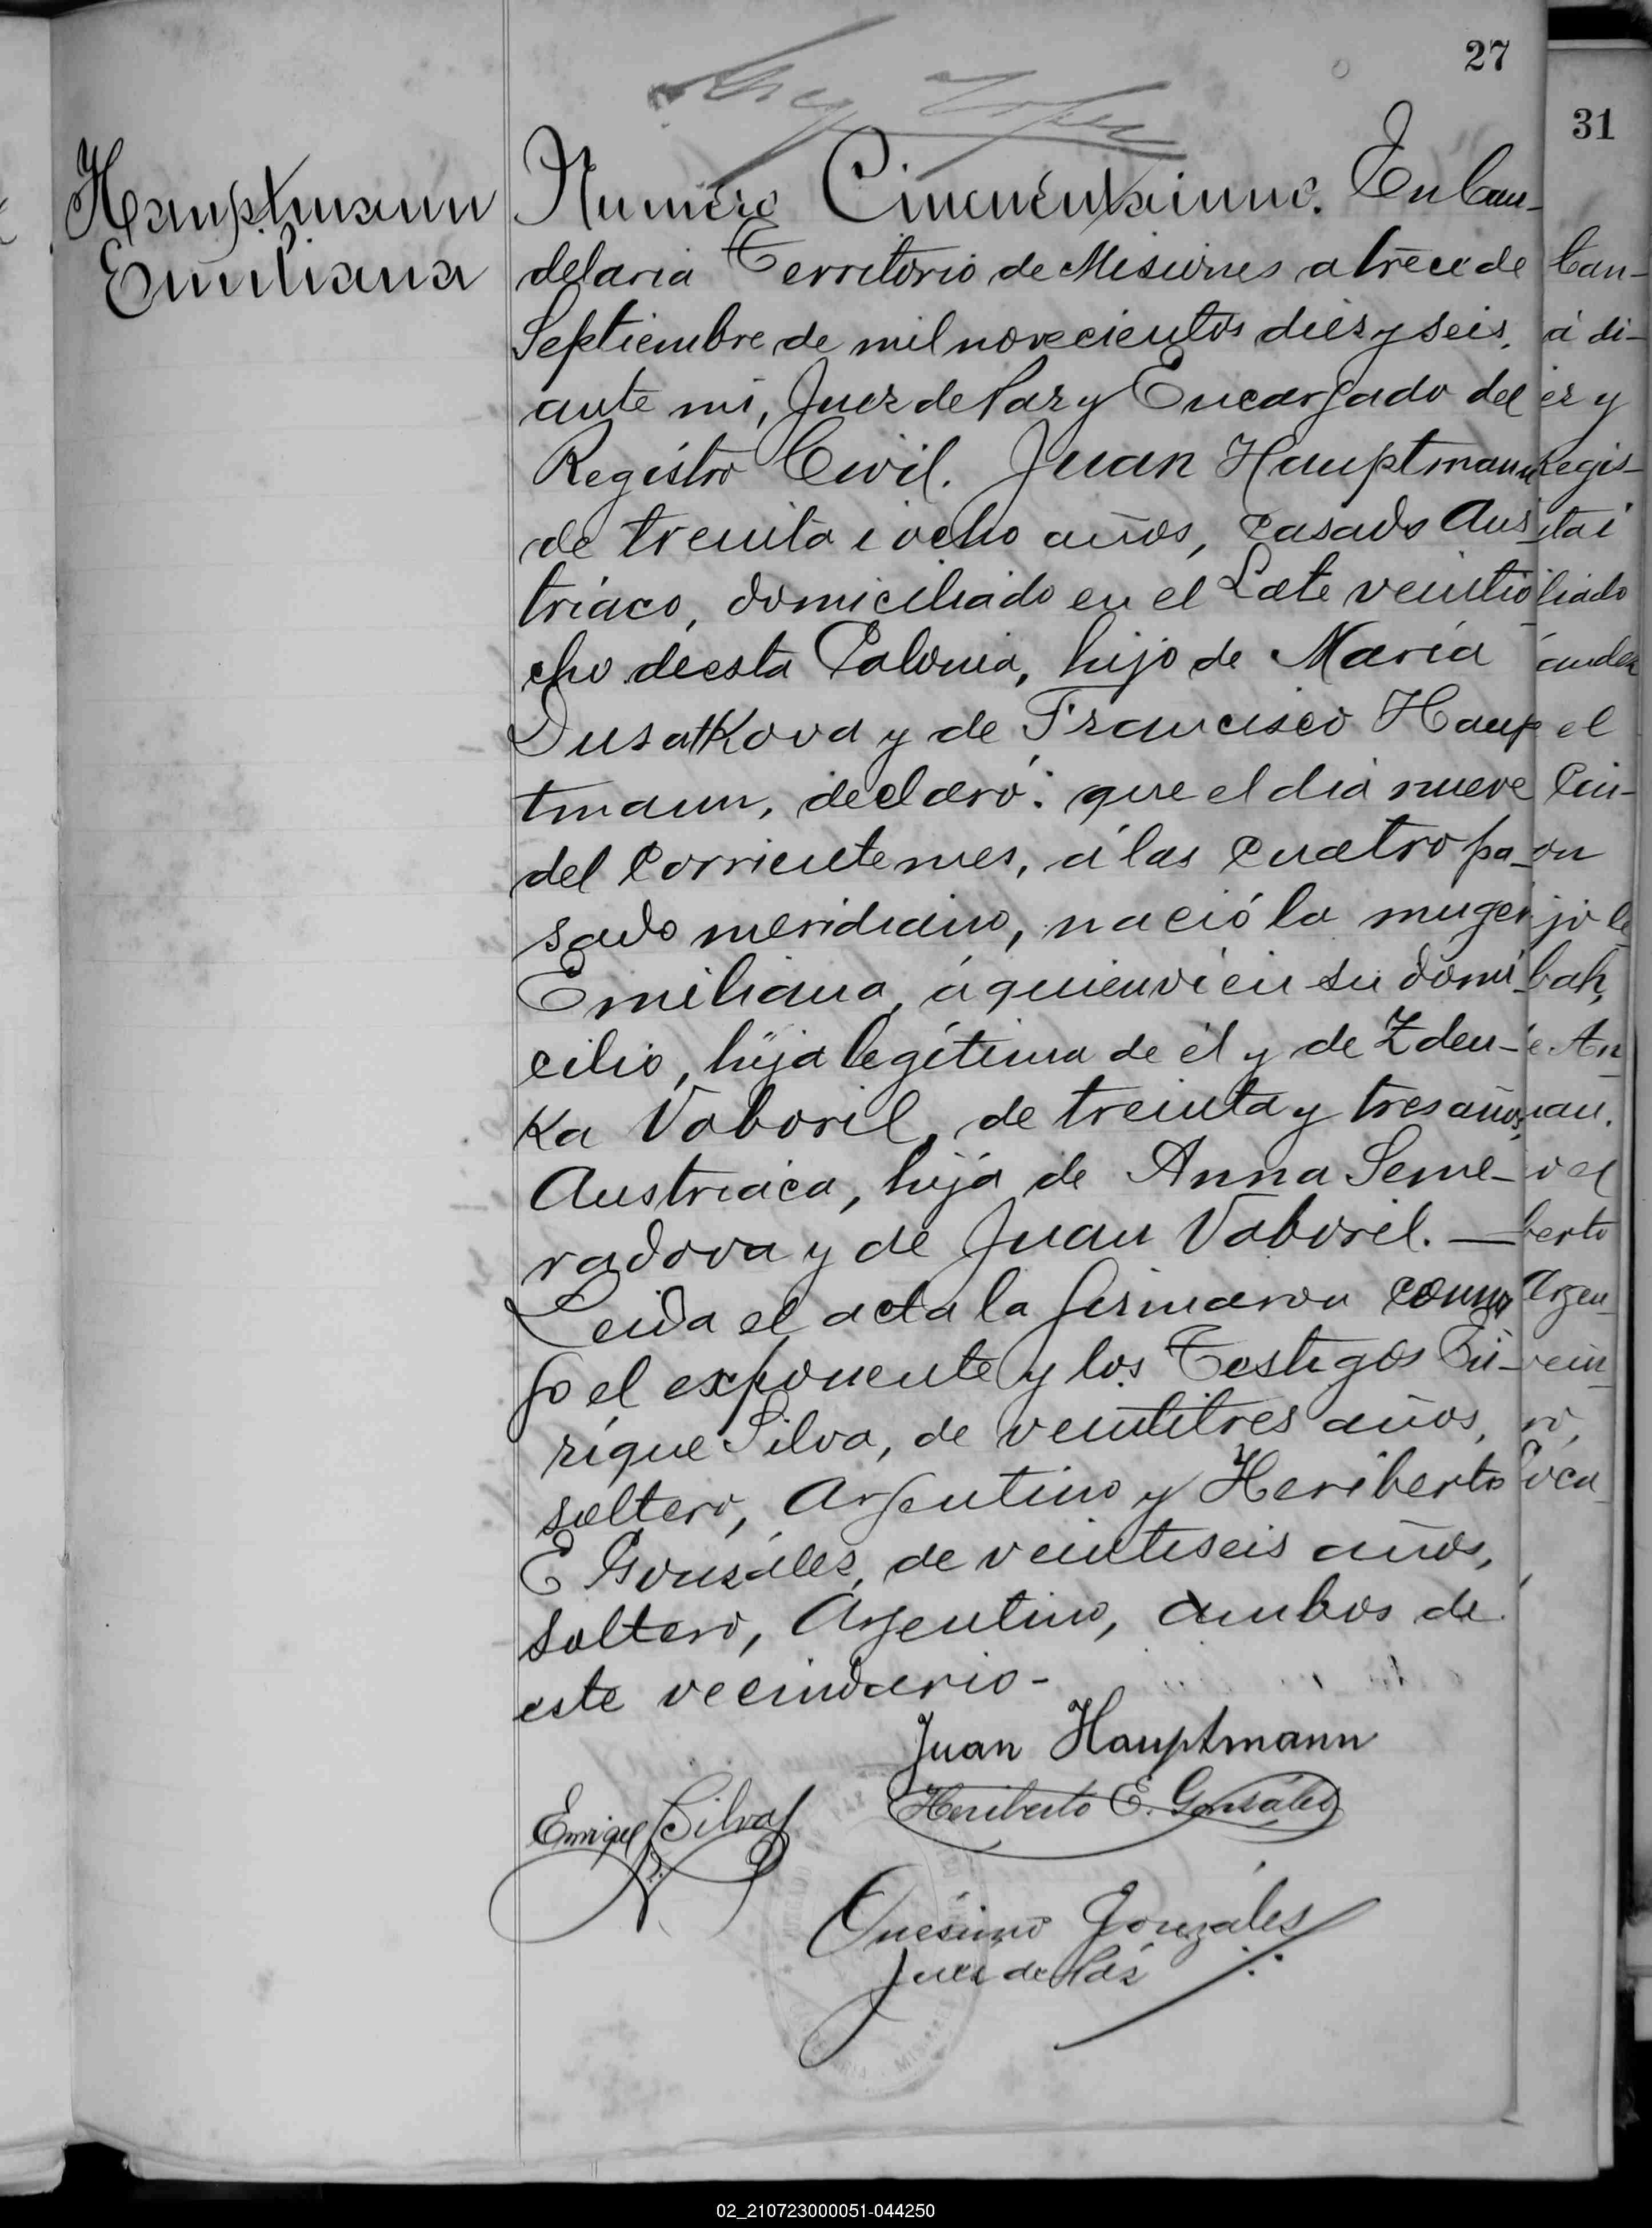 27
31
Hauptmann
Emiliana
Numero Cincuentaiuno. En Can-
delaria Territorio de Misiones a trece de
Septiembre de mil novecientos diez y seis,
ante mi, Juez de Paz y Encargado del
Registro Civil. Juan Hauptmann
de treinta i ocho años, casado Aus-
triaco, domiciliado en el Lote veintio-
cho de esta Colonia, hijo de María
Dusatkova y de Francisco Haup
tmann, declaró: que el dia nueve
del corriente mes, á las cuatro pa-
sado meridiano, nació la muger
Emiliana, á quien vi en su domi-
cilio, hija legítima de él y de Zden-
ka Voboril, de treinta y tres años,
Austriaca, hija de Anna Seme-
radova y de Juan Voboril. —
Leida el acta la firmaron conmi
go el exponente y los Testigos En-
rique Silva, de veintitres años,
soltero, Argentino y Heriberto
E Gonsáles, de veintiseis años,
soltero, Argentino, ambos de
este vecindario-
Juan Hauptmann
Enrique Silva
Heriberto E. Gonsáles
Onesimo Gonzáles
Juez de Páz
Can-
á di-
ez y
Regis-
ta i
liado
ández
el
Cin-
on
jo le
bah,
é An
uan.
o el
berto
Argen
vein
ró,
02_210723000051-044250